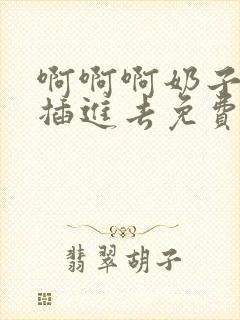 啊啊啊奶子
插進去免費
翡翠胡子